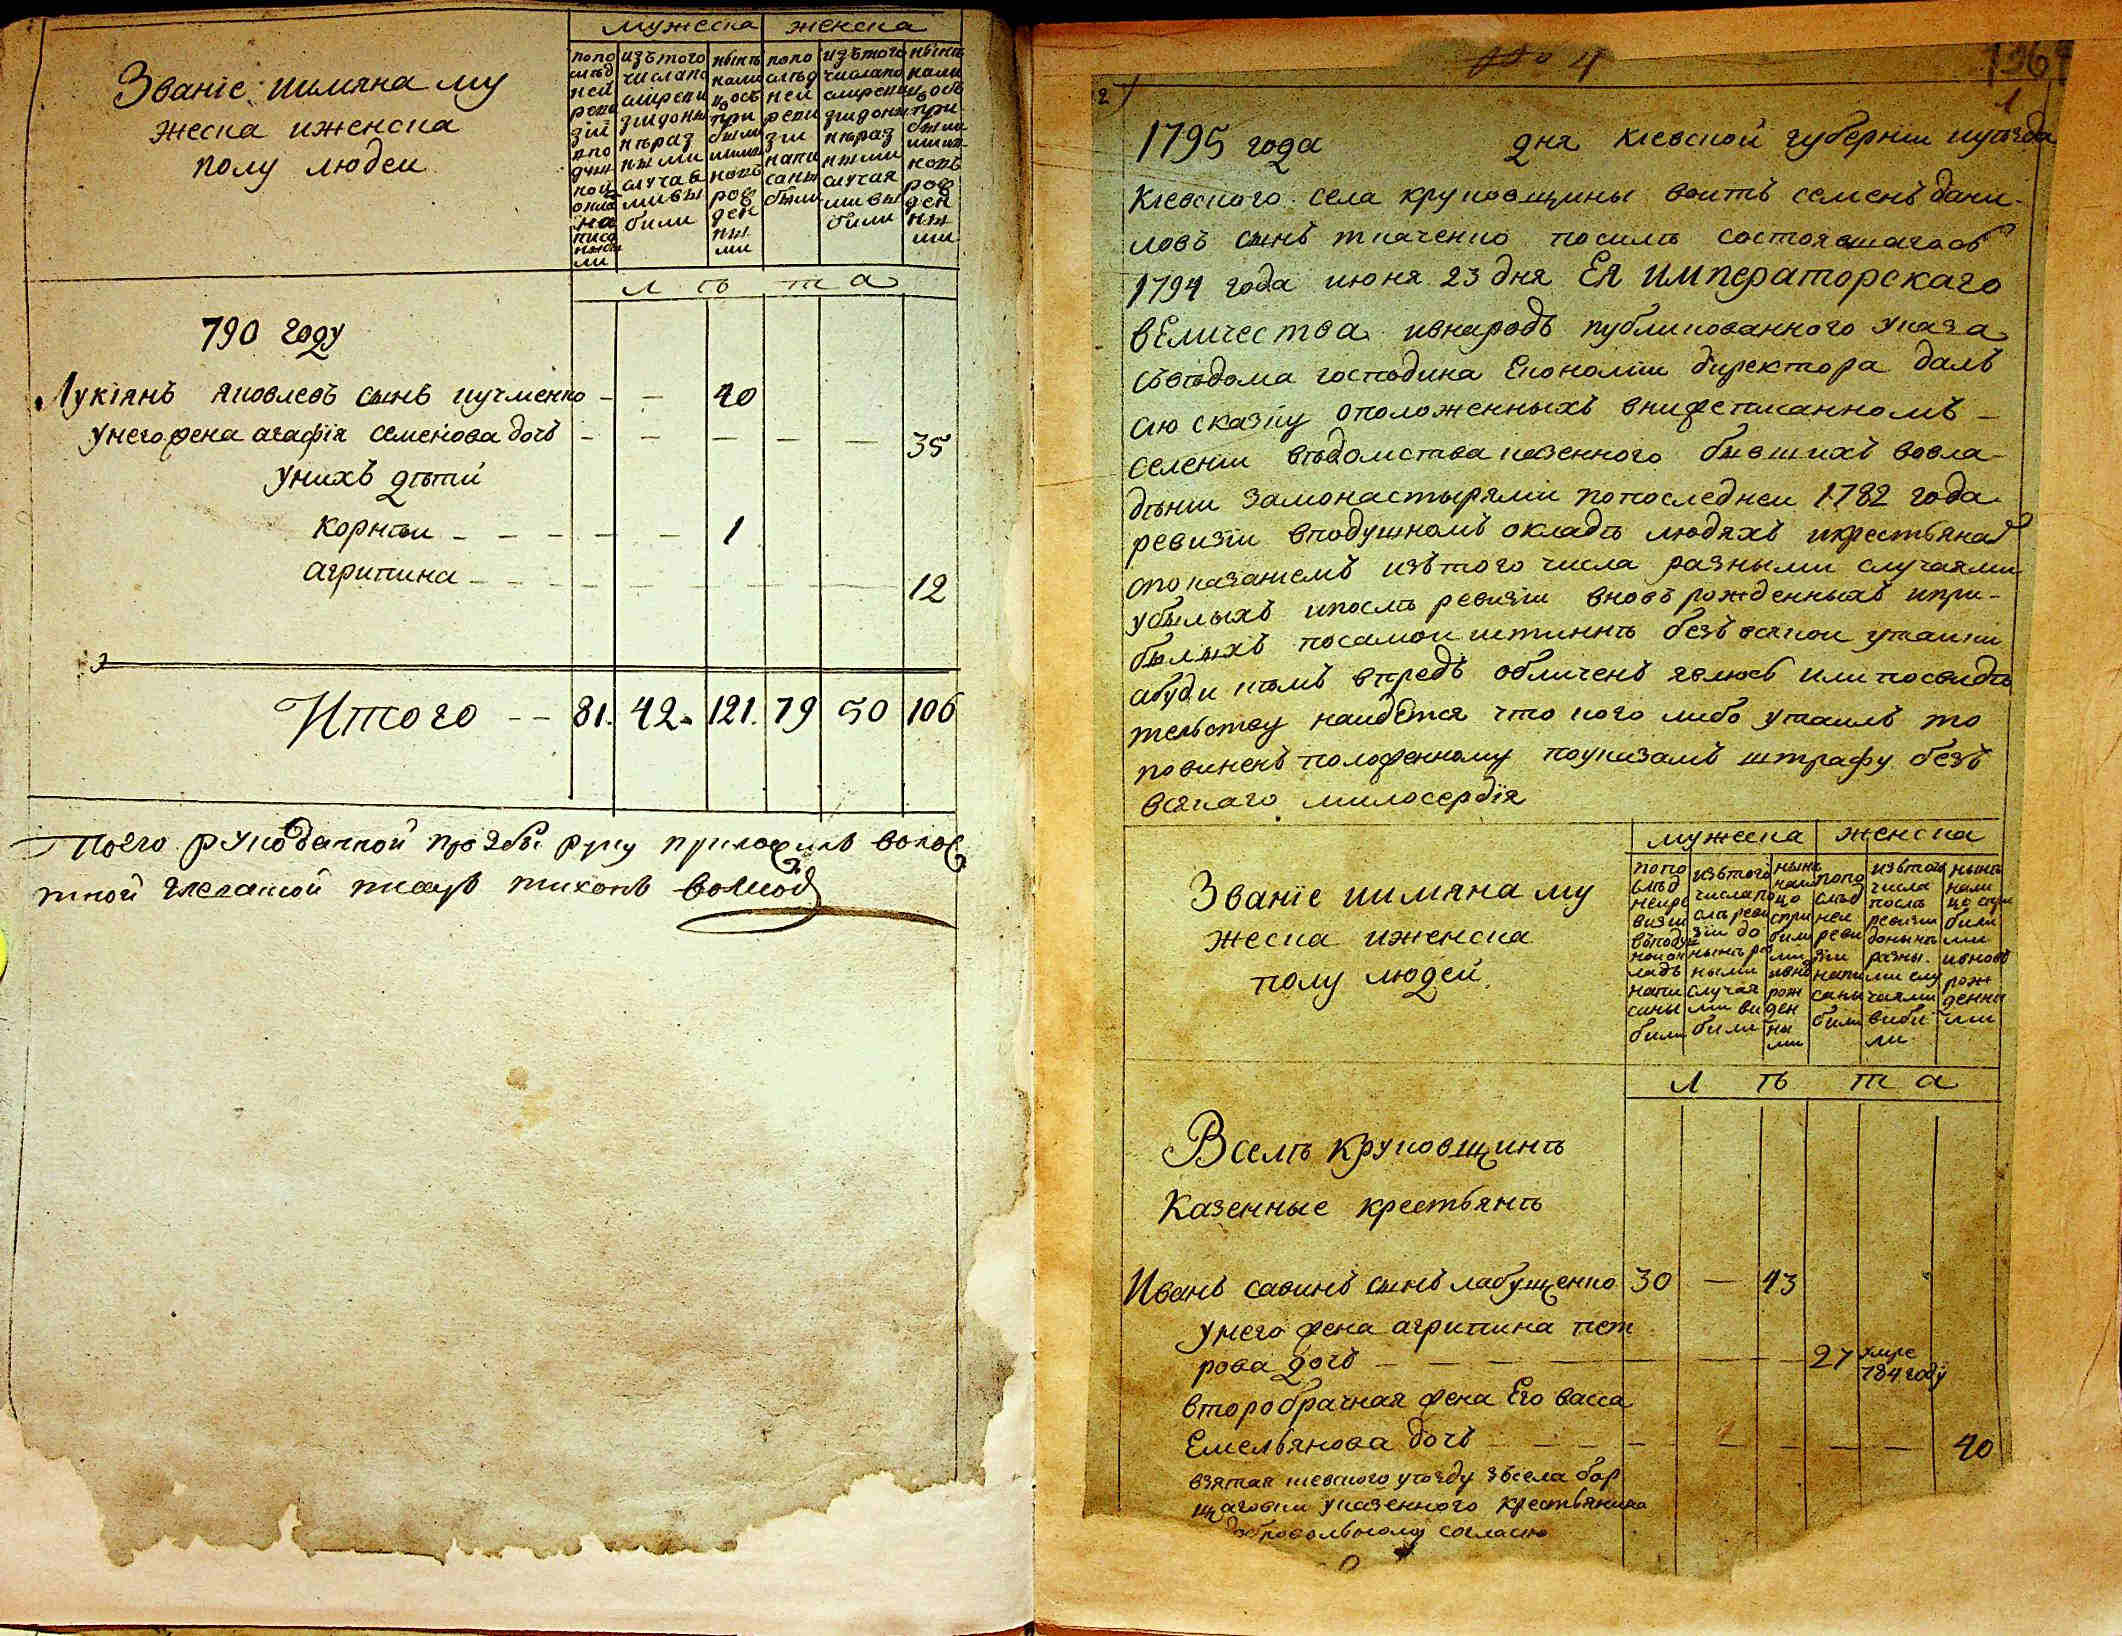 мужеска женска
Званїе иимяна му
жеска иженска
полу людеи
попо
слѣд
ней
реви
зїи
изътого
числапо
слѣреви
зїидоны
нѣраз
ными
случая
мивы
били
нынѣ
нали
цосъ
при
были
ми
новъ
рож
ден
ны
ми
попо
слѣд
ней
реви
зїи
напи
саны
были
изътого
числапо
слѣреви
зїидоны
нѣраз
ными
случая
мивы
били
нынѣ
нали
цосъ
при
были
ми
новъ
рож
ден
ны
ми
л ѣ т а
790 году
Лукїянъ яковлевъ сынъ кучменко - - 40
унегожена агафїя семенова дочь - - - - - 35
унихъ дѣти
корнѣи - - - - - 1
агрипина - - - - - 12
Итого -- 81. 42. 121. 79 50 106
Поего рукоданной прозбѣ руку приложилъ волос
тной писарь тихонъ
4
196
1
2
1795 года дня кїевской губернїи иуѣзда
кїевского села круковщины воитъ семенъ дани-
ловъ сынъ ткаченко посилѣ состоявшагося
1794 года июня 23 дня Ея императорскаго
вЕличества ивнародъ публикованного указа
съвѣдома господина Економїи директора далъ
сїю сказку оположенныхъ внижеписанномъ -
селенїи вѣдомства казенного бывшихъ вовла-
дѣнїи замонастырями попоследнеи 1782 года
ревизїи вподушномъ окладѣ людяхъ икрестьянах
споказанїемъ изътого числа разными случаями
убылыхъ ипослѣ ревизїи вновъ рожденныхъ ипри-
былыхъ посамои истиннѣ безъ всякои утаики
абуди кѣмъ впредъ обличенъ явлюсь илипосвидѣ
тельству наидется что кого либо утаилъ то
повиненъ положенному поуказамъ штрафу безъ
всякаго милосердїя
мужеска женска
Званїе иимяна му
жеска иженска
полу людей
попо
слѣд
нейре
визїи
вподуш
ном ок
ладѣ
напи
саны
били
изътого
числапо
слѣреви
зїи до
нынѣ раз
ными
случая
ми ви
били
нынѣ
нали
цо
спри
били
ми
ивнов
рож
ден
ны
ми
попо
слѣд
неи
реви
зїи
напи
саны
били
изтого
числа
послѣ
ревизїи
донынѣ
разны
ми слу
чаями
виби
ли
нынѣ
нали
цо спри
били
ми
ивновъ
рож
денны
ми
л ѣ т а
Вселѣ круковщинѣ
Казенные крестьянѣ
Иванъ савинъ сынъ лабущенко 30 — 43
унего жена агрипина пет
рова дочь — — — — — — — 27 умре
784 году
второбрачная жена Его васса
Емельянова дочь — — — — — — — 40
взятая кїевского уѣзду зъсела бор
щаговки указенного крестьянина
добровольному согласїю